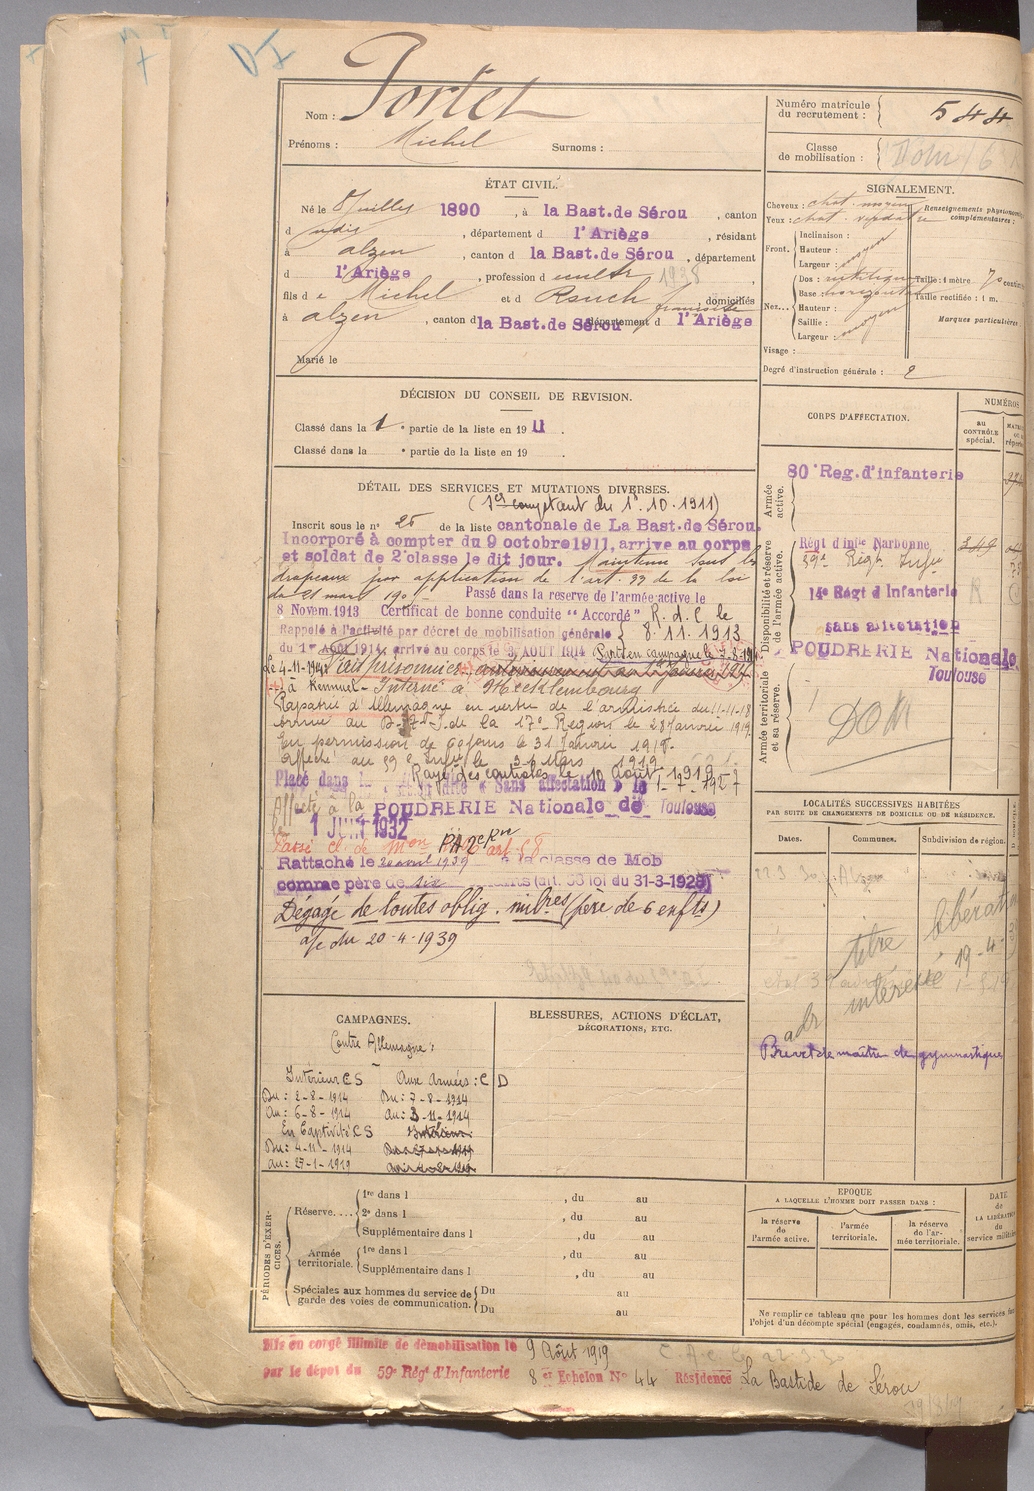 DI
Nom : Portet
Prénoms : Michel Surnoms :
ÉTAT CIVIL.
Né le 8 Juillet 1890, à la Bast. de Sérou, canton
d udit, département d l'Ariège, résidant
à alzen, canton d la Bast. de Sérou, département
d l'Ariège, profession d cultr 1938,
fils d e Michel et d Rouch françoise, domiciliés
à alzen, canton d la Bast. de Sérou département d l'Ariège
Marié le
DÉCISION DU CONSEIL DE REVISION.
Classé dans la 1e partie de la liste en 1911.
Classé dans la e partie de la liste en 19 .
DÉTAIL DES SERVICES ET MUTATIONS DIVERSES.
(Ser comptant du 1er.10.1911)
Inscrit sous le n° 25 de la liste cantonale de La Bast. de Sérou.
Incorporé à compter du 9 octobre 1911, arrive au corps
et soldat de 2e classe le dit jour. Maintenu sous les
drapeaux par application de l'art. 33 de la loi
du 21 mars 1905 Passé dans la réserve de l'armée active le
8 Novem. 1913 Certificat de bonne conduite "Accordé" R. d. C le
Rappelé à l'activité par décret de mobilisation générale 8.11.1913
du 1er AOUT 1914, arrivé au corps le 3 AOUT 1914 Parti en campagne le 7-8-1914
Le 4-11-1914 fait prisonnier
à Kemmel - Interné à Mecklembourg
Rapatrié d'Allemagne en vertu de l'armistice du 11-11-18
arrivé au D. de la 17e Région le 28 Janvier 1919.
En permission de 60 jours le 31 Janvier 1919.
Affecté au 59e Inft le Mars 1919
Rayé des contrôles le 10 Août 1919
Placé dans la « Sans affectation » le 1-7-1927
Affecté à la POUDRERIE Nationale de Toulouse
1 JUIN 1932
Passé cl. de Mon art. 58
Rattaché le 20 avril 1939 à la classe de Mob
comme père de six enfants (art. 58 loi du 31-3-1928)
Dégagé de toutes oblig. milres (père de 6 enfts)
a/c du 20-4-1939
CAMPAGNES.
Contre Allemagne :
Intérieur CS Aux Armées : C D
Du : 2-8-1914 Du : 7-8-1914
Au : 6-8-1914 Au : 3-11-1914
En Captivité CS Intérieur
Du : 4-11-1914
Au : 27-1-1919
BLESSURES, ACTIONS D'ÉCLAT,
DÉCORATIONS, ETC.
PÉRIODES D'EXERCICES.
Réserve....
1re dans l , du au
2e dans l , du au
Supplémentaire dans l , du au
Armée territoriale.
1re dans l , du au
Supplémentaire dans l , du au
Spéciales aux hommes du service de garde des voies de communication.
Du au
Du au
Mis en congé illimité de démobilisation le 9 Août 1919
par le dépôt du 59e Régt d'Infanterie 8 e Echelon N° 44 Résidence La Bastide de Sérou
Numéro matricule du recrutement : 544
Classe de mobilisation :
SIGNALEMENT.
Cheveux : chat. moyen
Yeux : chat. verdatre
Renseignements physionomiques complémentaires :
Front.
Inclinaison :
Hauteur : moyen
Largeur :
Nez...
Dos : rectiligne
Base : horizontal
Hauteur :
Saillie : moyen
Largeur :
Taille : 1 mètre 70 centim
Taille rectifiée : 1 m.
Marques particulières
Visage :
Degré d'instruction générale : 2
CORPS D'AFFECTATION.
NUMÉROS
au CONTRÔLE spécial.
Armée active.
80e Reg. d'infanterie
Disponibilité et réserve de l'armée active.
Régt d'infie Narbonne 349
59e Régt Infie
14e Régt d'Infanterie R
sans affectation
POUDRERIE Nationale
Toulouse
Armée territoriale et sa réserve.
DOM
LOCALITÉS SUCCESSIVES HABITÉES
PAR SUITE DE CHANGEMENTS DE DOMICILE OU DE RÉSIDENCE.
Dates. Communes. Subdivision de région.
22 3 30 Alzen
titre
intéressé
19-4-
Brevet de maître de gymnastique
EPOQUE
A LAQUELLE L'HOMME DOIT PASSER DANS :
la réserve de l'armée active.
l'armée territoriale.
la réserve de l'armée territoriale.
DATE de LA LIBÉRATION du service militaire
Ne remplir ce tableau que pour les hommes dont les services font
l'objet d'un décompte spécial (engagés, condamnés, omis, etc.).